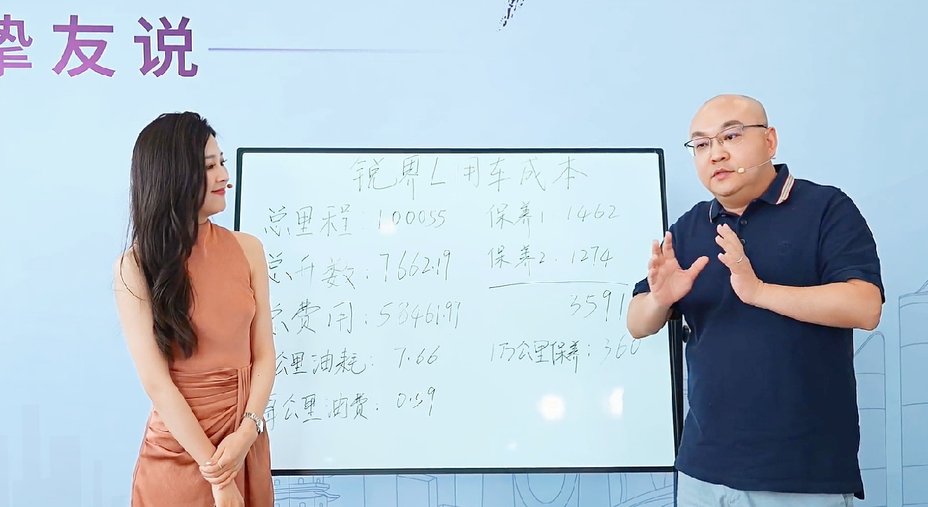 挚友说
锐界L用车成本
总里程：100055
总升数：7662.19
总费用：58461.91
公里油耗：7.66
每公里油费：0.59
保养1. 1462
保养2. 1274
3591
1万公里保养：360